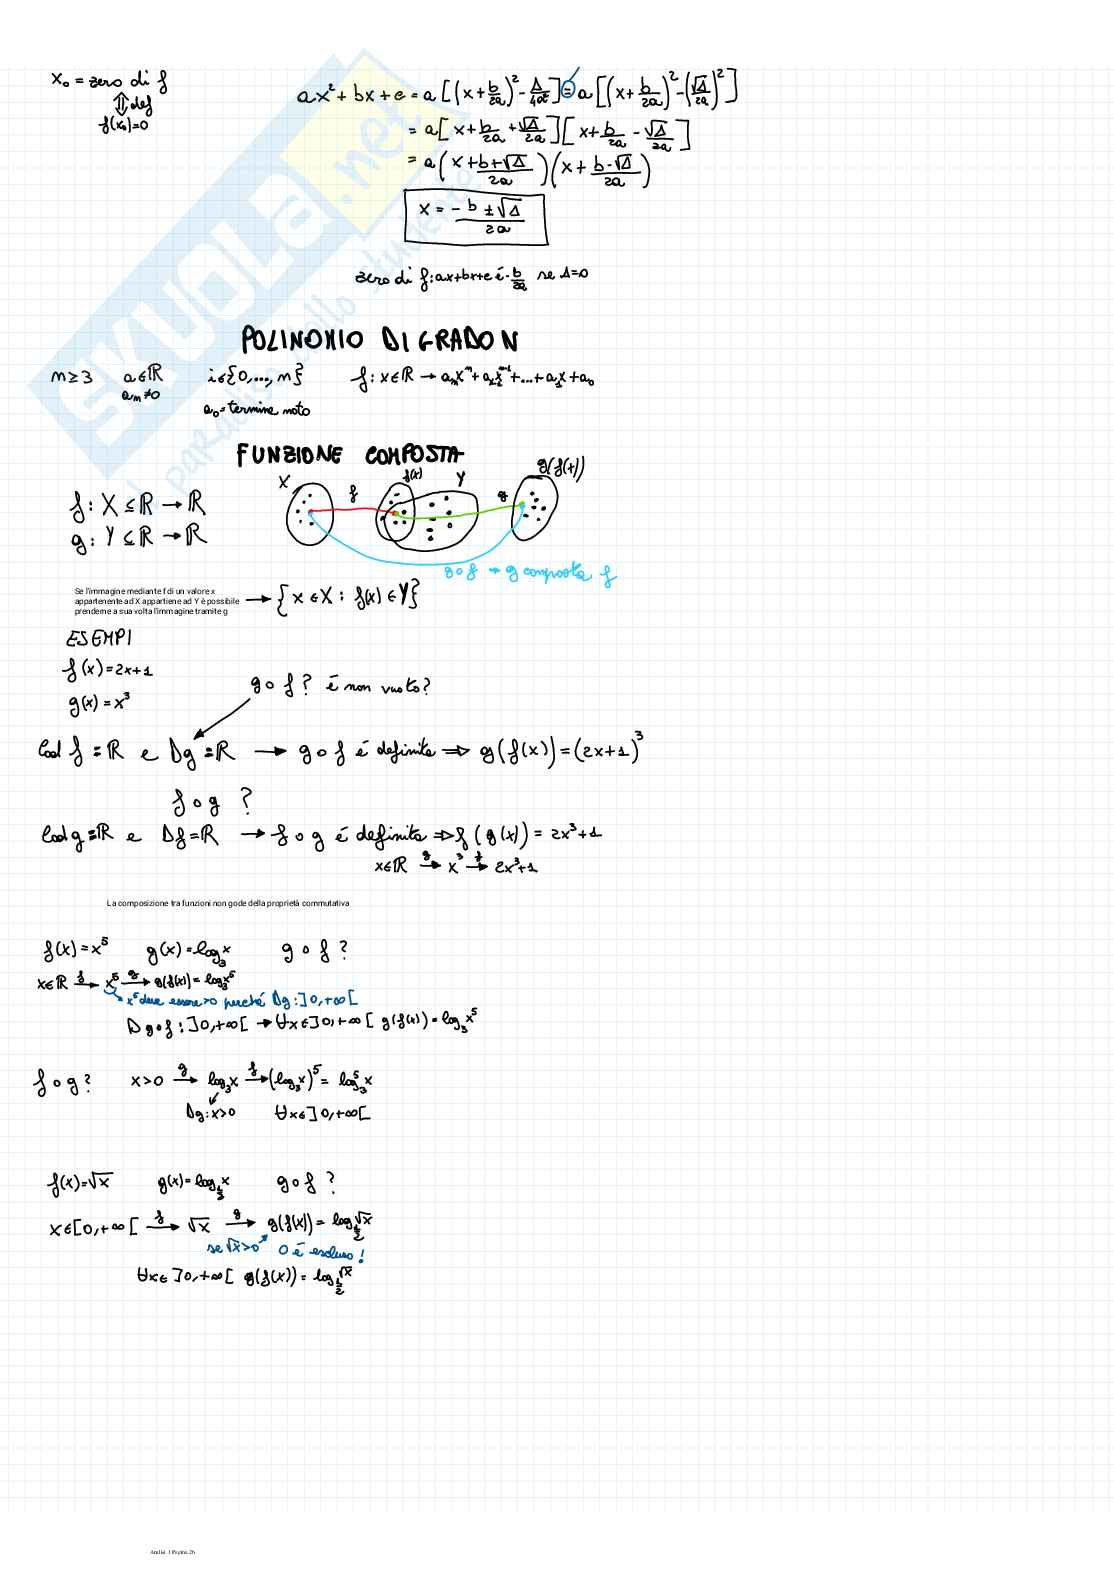 x₀ = zero di f
⇕ def
f(x₀)=0
ax² + bx + c = a[(x+b/2a)² - Δ/4a²] = a[(x+b/2a)² - (√Δ/2a)²]
= a[x+b/2a + √Δ/2a][x+b/2a - √Δ/2a]
= a(x+b+√Δ/2a)(x+b-√Δ/2a)
x = -b ± √Δ/2a
zero di f: ax+bx+c é -b/2a se Δ=0
POLINOMIO DI GRADO N
n≥3 a∈ℝ i∈{0,...,n} f: x∈ℝ → aₙxⁿ+aₙ₋₁xⁿ⁻¹+...+a₁x+a₀
aₙ≠0 a₀=termine noto
FUNZIONE COMPOSTA
X f f(x) Y g g(f(x))
f: X ⊆ ℝ → ℝ
g: Y ⊆ ℝ → ℝ
g∘f → g composta f
Se l'immagine mediante f di un valore x
appartenente ad X appartiene ad Y è possibile
prenderne a sua volta l'immagine tramite g
→ {x∈X : f(x)∈Y}
ESEMPI
f(x)=2x+1
g(x)=x³
g∘f? é non vuoto?
Cod f=ℝ e Dg=ℝ → g∘f é definita ⇒ g(f(x))=(2x+1)³
f∘g ?
Cod g=ℝ e Df=ℝ → f∘g é definita ⇒ f(g(x)) = 2x³+1
x∈ℝ →g x³ →f 2x³+1
La composizione tra funzioni non gode della proprietà commutativa
f(x)=x⁵ g(x)=log₃x g∘f ?
x∈ℝ →f x⁵ →g g(f(x))=log₃x⁵
x⁵ deve essere >0 perché Dg:]0,+∞[
Dg∘f:]0,+∞[ → ∀x∈]0,+∞[ g(f(x))=log₃x⁵
f∘g? x>0 →g log₃x →f (log₃x)⁵ = log₃⁵x
Dg: x>0 ∀x∈]0,+∞[
f(x)=√x g(x)=log½x g∘f ?
x∈[0,+∞[ →f √x →g g(f(x)) = log½√x
se √x>0 0 é escluso!
∀x∈]0,+∞[ g(f(x)) = log½√x
Analisi 1 Pagina 26
SKUOLA.net
il paradiso dello studente